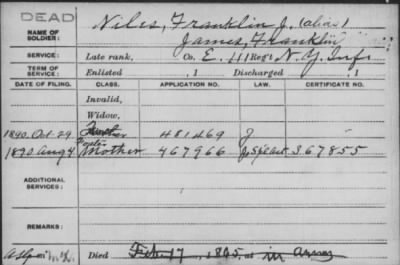 DEAD
NAME OF SOLDIER: Niles, Franklin J. (alias)
James, Franklin
SERVICE: Late rank, Co. E, 111 Reg't N.Y. Inf.
TERM OF SERVICE: Enlisted , 1 Discharged , 1
DATE OF FILING. CLASS. APPLICATION NO. LAW. CERTIFICATE NO.
Invalid,
Widow,
1890 Oct 29 481469 J
1890 Aug 4 Mother 467966 367855
ADDITIONAL SERVICES:
REMARKS:
Died Feb. 17, 1865, at in Army